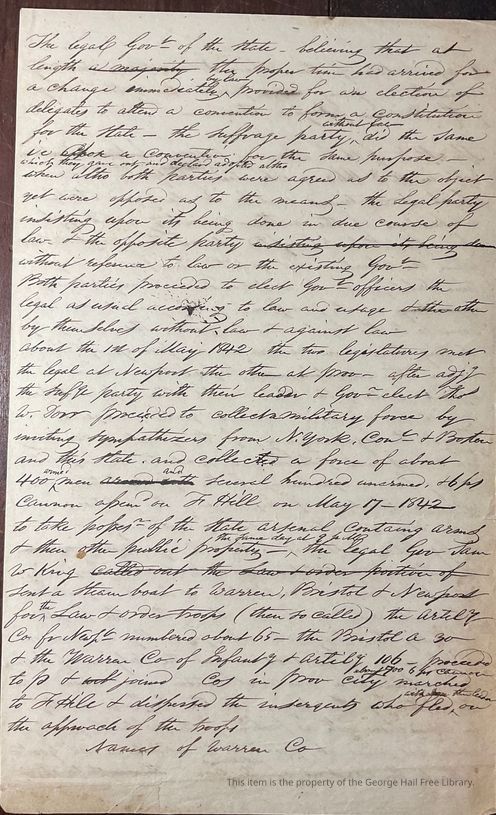 The legal Govt of the State - believing that at
length a majority the proper time had arrived for
a change immediately by law provided for an election of
delegates to attend a convention to form a Constitution
for the State - the Suffrage party, without law did the same
a convention for the same purpose -
when altho both parties were agreed as to the object
yet were opposed as to the means - the legal party
insisting upon its being done in due course of
law & the opposite party insisting upon its being
without reference to law or the existing Govt
Both parties proceeded to elect Govt officers the
legal as usual according to law and usage & the other
by themselves without law & against law
about the 1st of May 1842 the two legislatures met
the legal at Newport the other at Prov - after adj
the Suffe party with their leader & Govr elect Tho
W. Dorr proceeded to collect a military force by
inviting sympathizers from N. York, Cont & Boston
and this State. and collected a force of about
400 armed men and several hundred unarmed. & 6 ps
Cannon on F. Hill on May 17 - 1842
to take possn of the State arsenal containg arms
& then other public property - the same day at the legal Gov Sam
W King called out the Law & order portion of
sent a steam boat to Warren, Bristol & Newport
for the Law & order troops (then so called) the Artily
Co fr Newpt numbered about 65 - the Bristol a 30
& the Warren Co of Infanty & Artily 106 - proceeded
to P & joined Cos in Prov City marched
to F Hile & dispersed the insurgents who fled, on
the approach of the troops
Names of Warren Co
This item is the property of the George Hail Free Library.